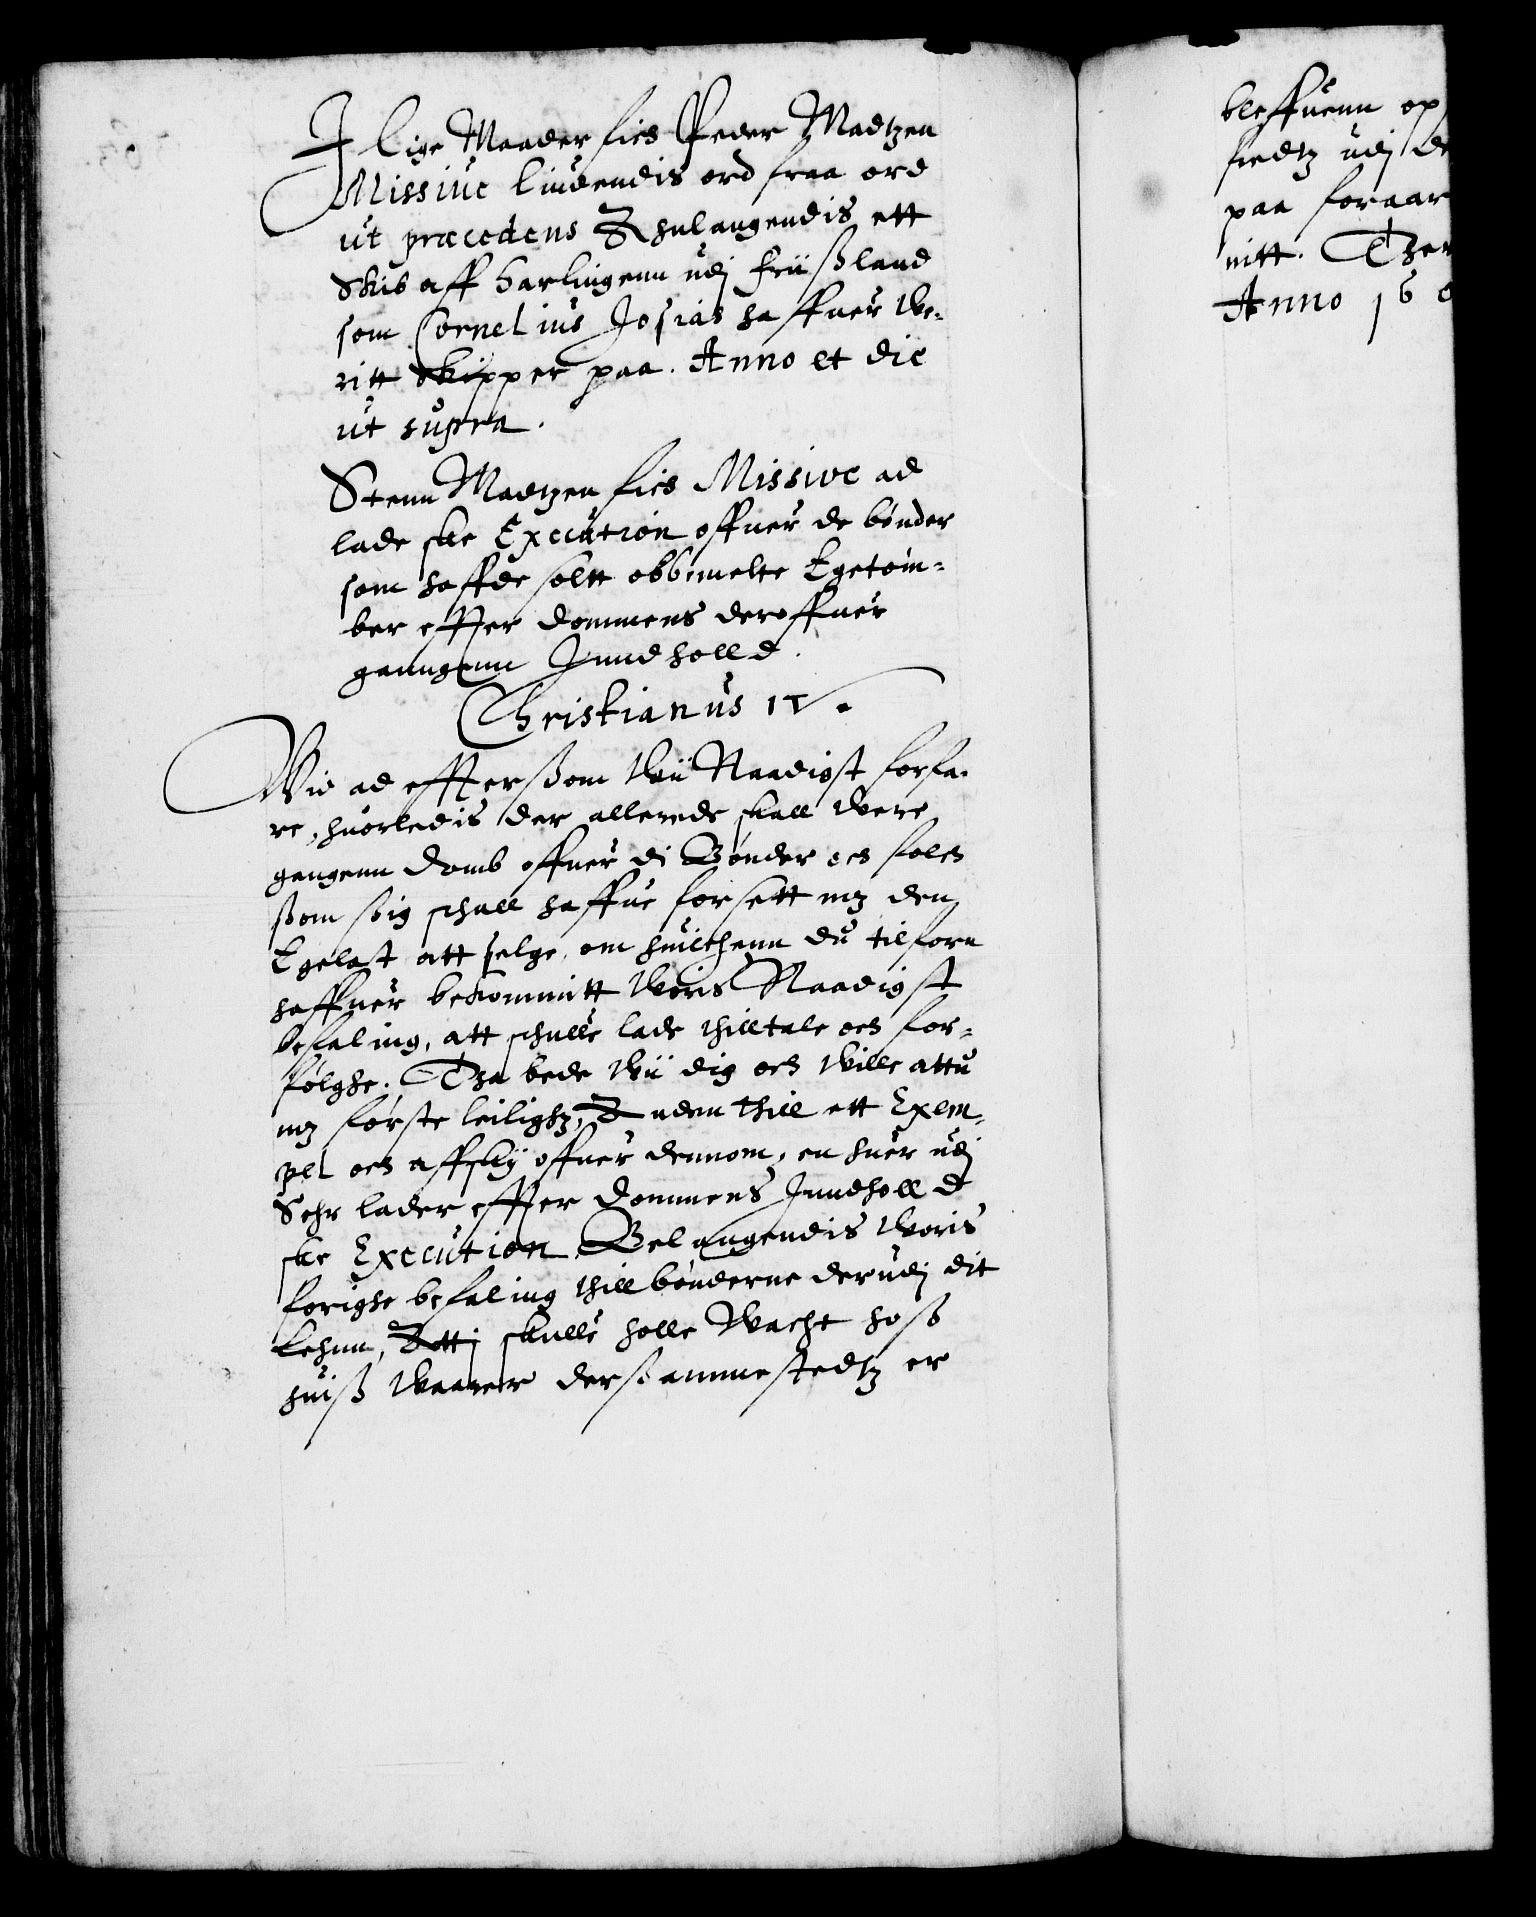 J lige Maader fick Peder Madtzen
Missiue liudendis ord fraa ord
ut præcedens Anlangendis ett
Skib aff Harlingenn udj Friißland
som Cornelius Josias haffuer We-
ritt Skipper paa. Anno et die
ut supra.
Stenn Madtzen fick Missive ad
lade ske Execution offuer de bønder
som haffde soltt obbemelte Egetøm-
ber effter dommens deroffuer
ganngenn Inndholld.
Christianus IV.
Wid ad effterßom Wii Naadigst forfa-
re, huorledis der allerede skall Were
gangenn domb offuer di Bønder och folch
ßom ßig schall haffue forsett mz den
Egelast att selge, om huilchenn du tilforn
haffuer bekommitt Woris Naadigst
befaling, att schulle lade thilltale och for-
følghe. Tha bede Wii dig och Wille attu
mz første leilighz, Anden thill ett Exem-
pel och affsky offuer dennom, en huer udj
Sehr lader effter dommens Inndholld
ske Execution. Belangendis Woris
forighe befaling thill bønderne derudj dit
Lehnn, Att j skulle holle Wacht hoß
huiß Waarer dersammestedtz er
bleffuenn op
stedtz udj de
paa foraar
nitt. Ther
Anno 16